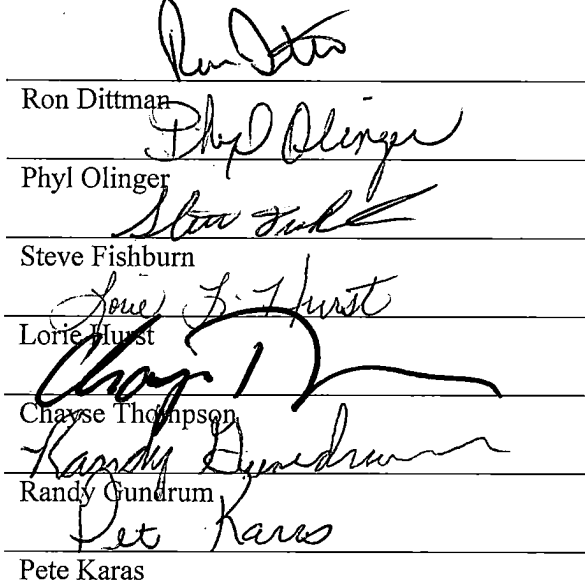 Ron Ditt
Ron Dittman
Phyl Olinger
Phyl Olinger
Steve
Steve Fishburn
Lorie L. Hurst
Lorie Hurst
Chayse Thompson
Randy Gundrum
Randy Gundrum
Pet Karas
Pete Karas